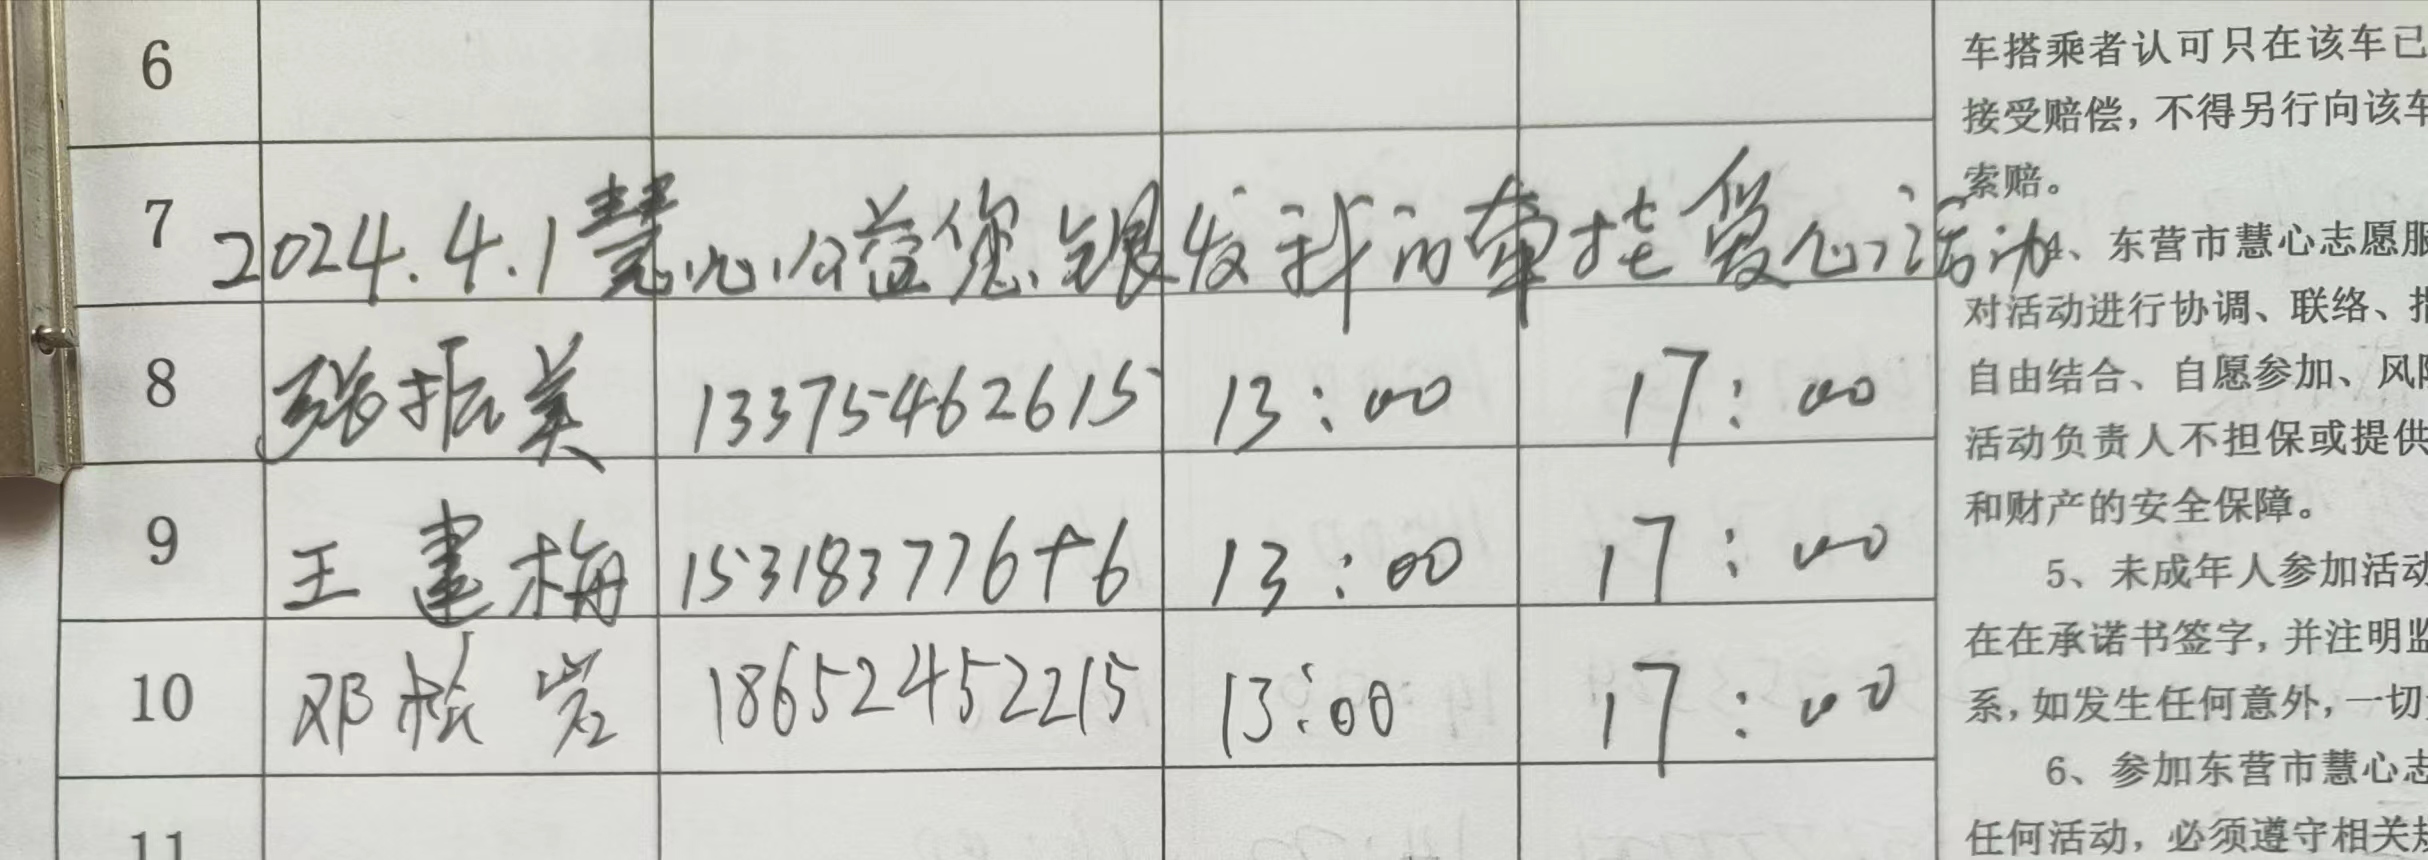 6
7 2024.4.1慧心公益您银发我的牵挂爱心活动
8 张振美 13375462615 13:00 17:00
9 王建梅 153183776 6 13:00 17:00
10 邓 岩 18652452215 13:00 17:00
11
车搭乘者认可只在该车已
接受赔偿，不得另行向该车
索赔。
、东营市慧心志愿服
对活动进行协调、联络、
自由结合、自愿参加、风
活动负责人不担保或提供
和财产的安全保障。
5、未成年人参加活动
在在承诺书签字，并注明监
系，如发生任何意外，一切
6、参加东营市慧心志
任何活动，必须遵守相关